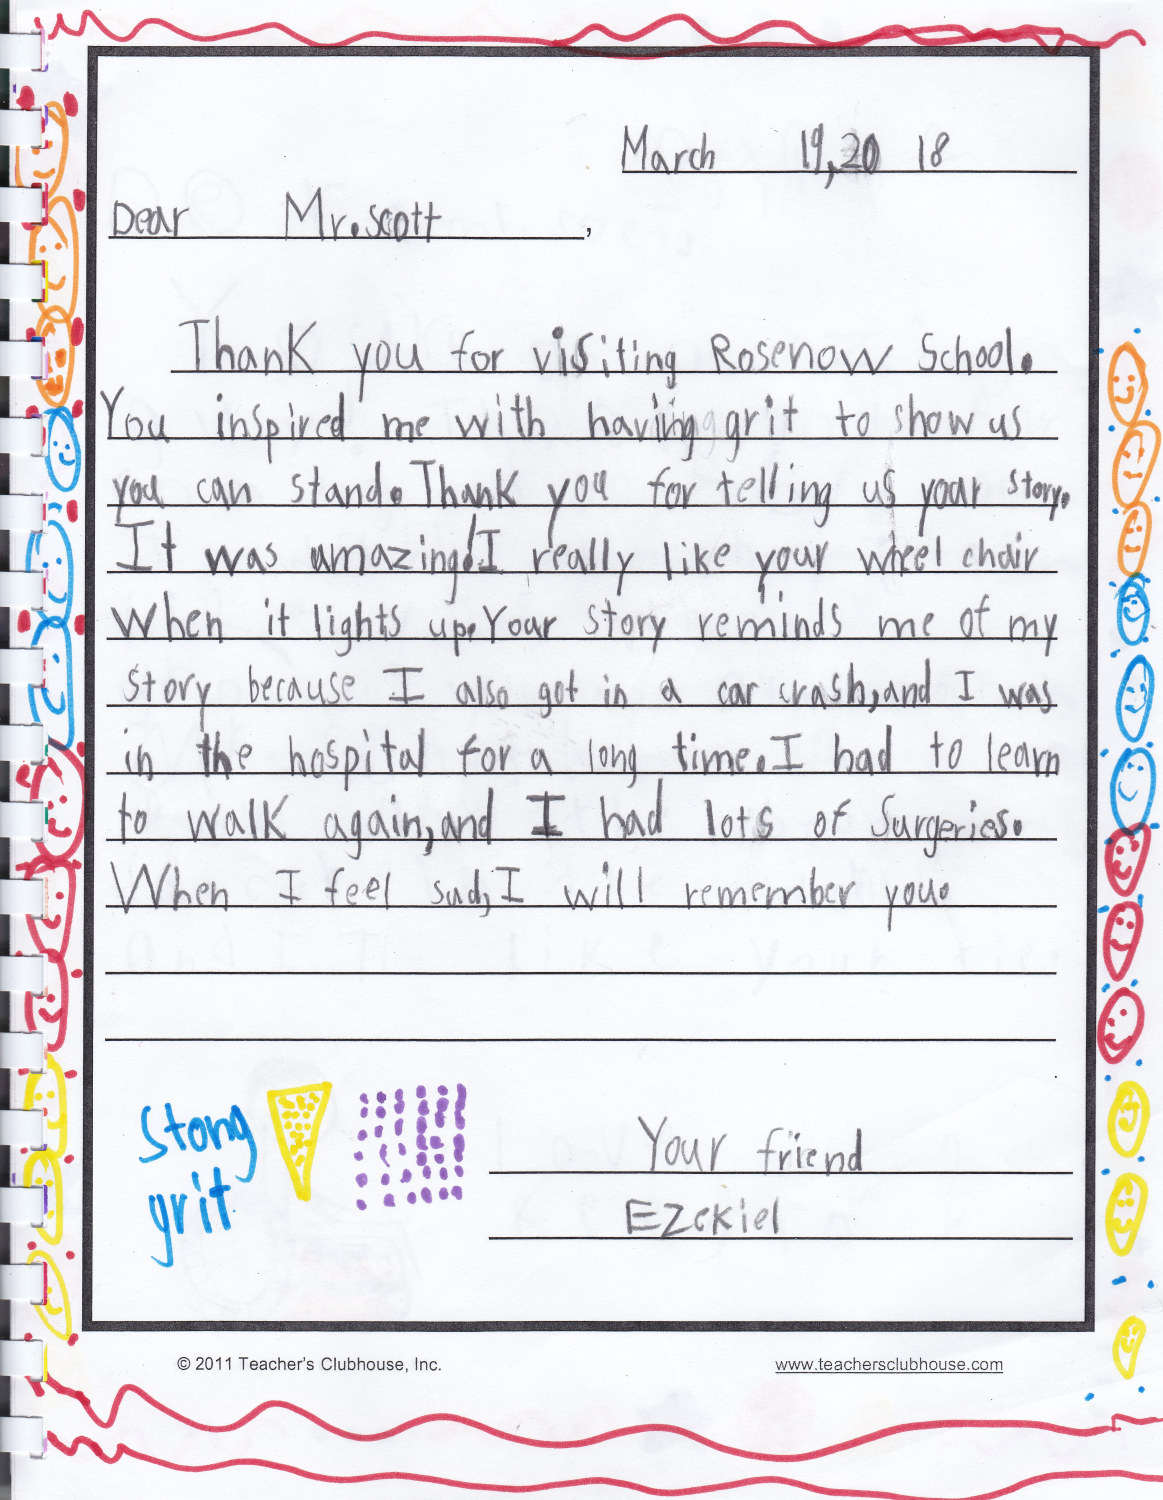 March 19, 20 18
Dear Mr. Scott,
Thank you for visiting Rosenow School.
You inspired me with having grit to show us
you can stand. Thank you for telling us your story.
It was amazing! I really like your wheel chair
When it lights up. Your story reminds me of my
story because I also got in a car crash, and I was
in the hospital for a long time. I had to learn
to walk again, and I had lots of Surgeries.
When I feel sad, I will remember you.
Stong
grit
Your friend
Ezekiel
© 2011 Teacher's Clubhouse, Inc.
www.teachersclubhouse.com